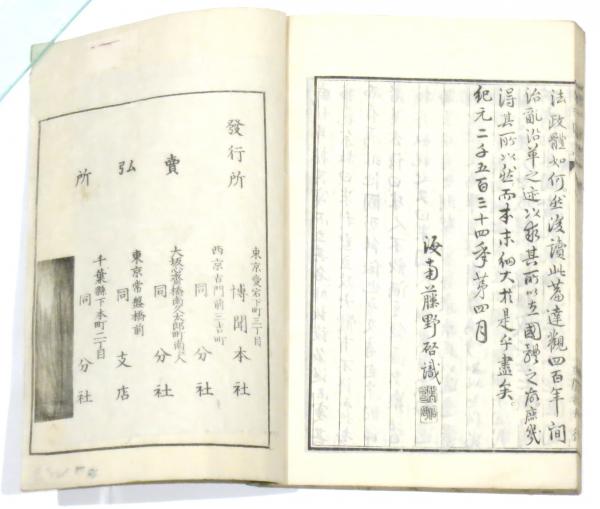 法政體如何然後讀此篇達觀四百年間
治亂沿革之迹以求其所以立國體之故庶幾
得其所以然而本末細大於是乎盡矣
紀元二千五百三十四年第四月
海南藤野啓識
發行所
東京愛宕町三丁目
博聞本社
西京古門前三吉町
同分社
賣弘所
同分社
東京常盤橋前
同支店
千葉縣下本町二丁目
同分社